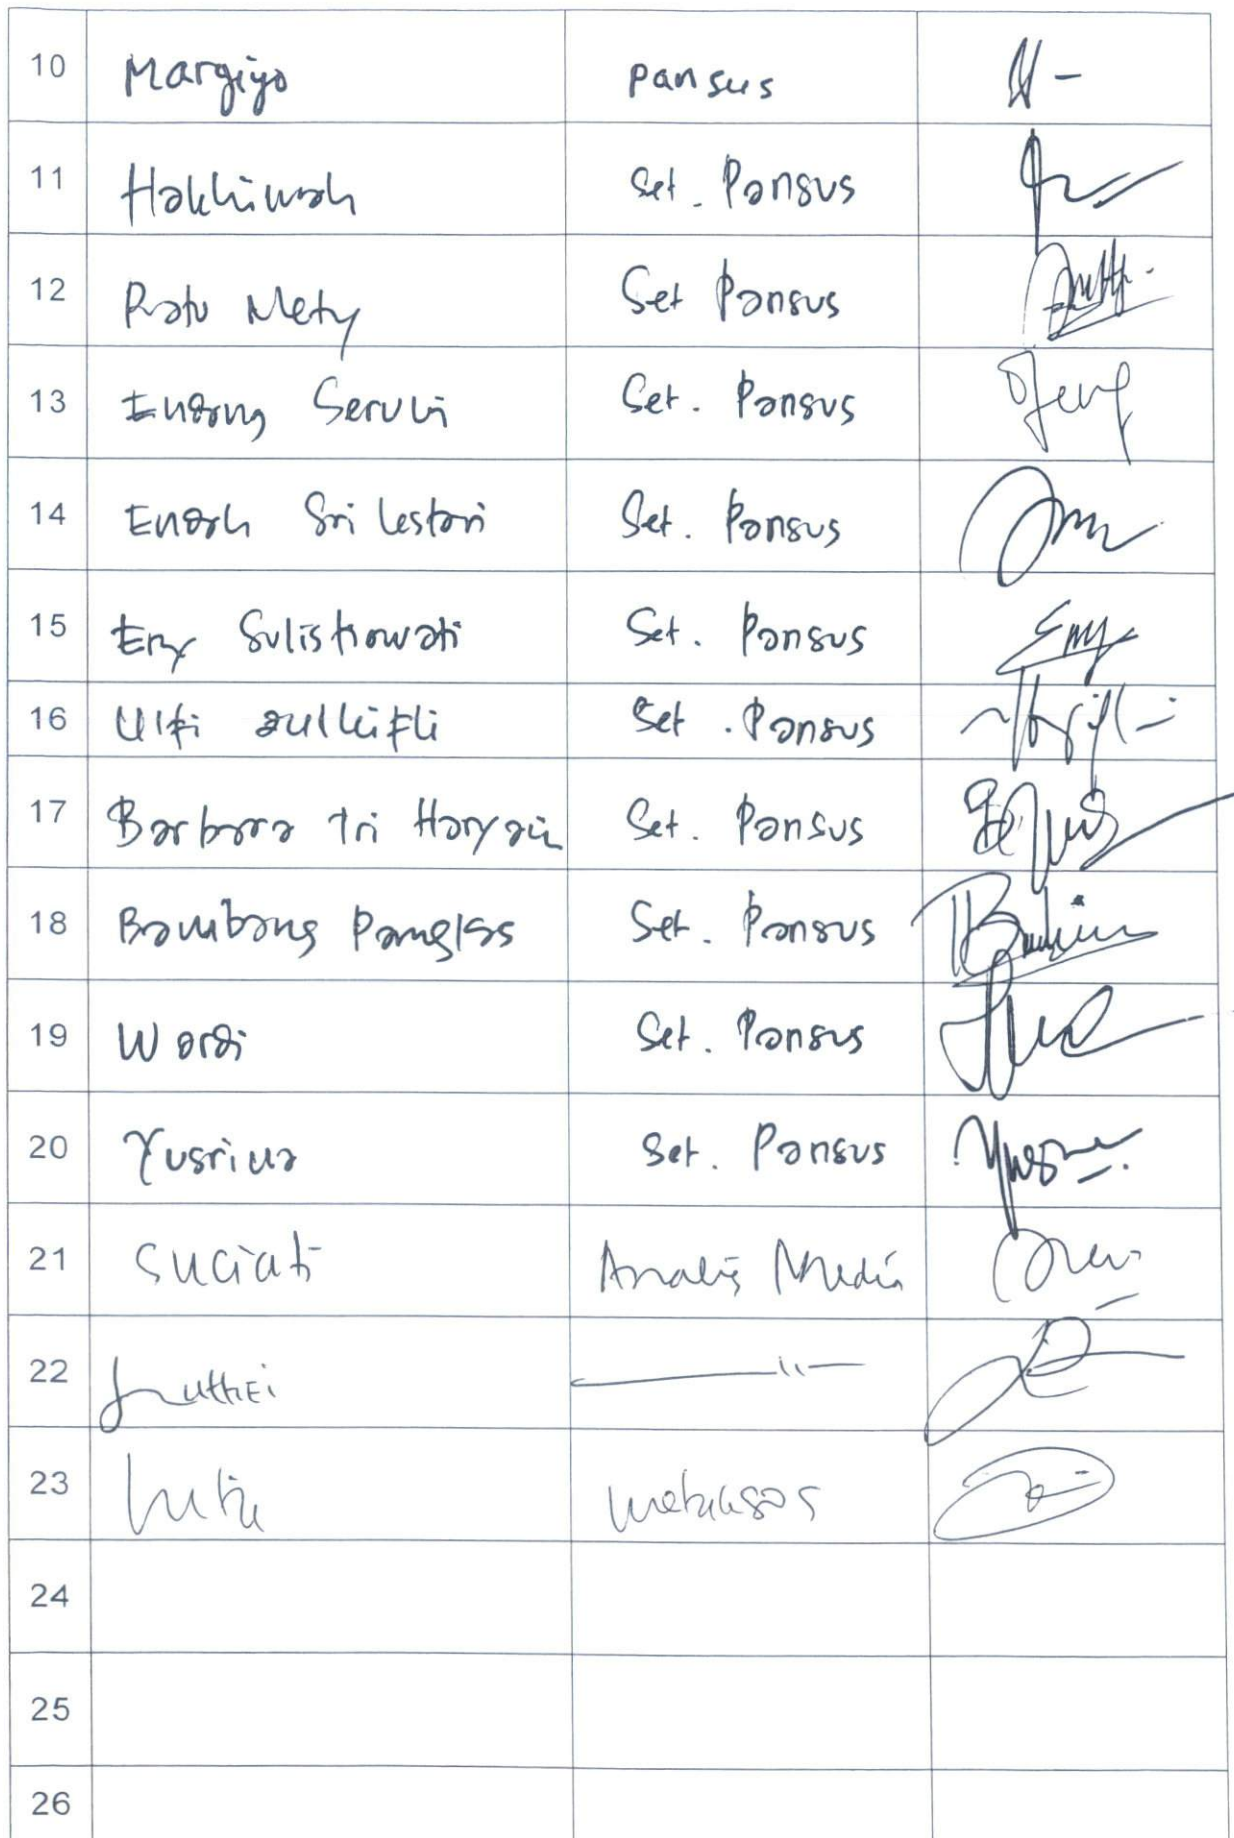 10 Margiyo pansus
11 Hakhimah Set. Pansus
12 Ratu Mety Set Pansus
13 Endang Seruni Set. Pansus
14 Endah Sri Lestari Set. Pansus
15 Eny Sulistiowati Set. Pansus
16 Ulfi zulkifli Set. Pansus
17 Barbara tri Haryani Set. Pansus
18 Bambang Set. Pansus
19 Wardi Set. Pansus
20 Yusrina Set. Pansus
21 Suciati Analis Media
22 Luthfi
23
24
25
26